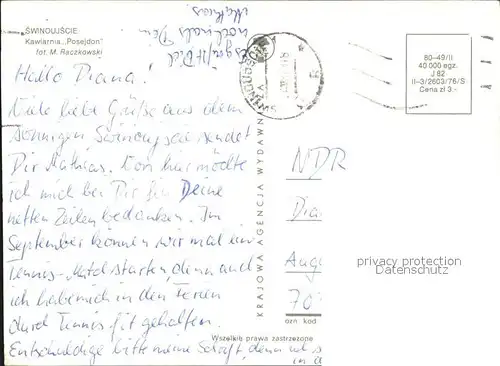 ŚWINOUJŚCIE
Kawiarnia „Posejdon”
fot. M. Raczkowski
Hallo Diana!
Viele liebe Grüße aus dem
sonnigen Swinoujscie sendet
Dir Mathias. Von hier möchte
ich mich bei Dir für Deine
netten Zeilen bedanken. Im
September können wir mal ein
Tennis-Match starten, denn auch
ich habe mich in den Ferien
durch Tennis fit gehalten.
Entschuldige bitte meine Schrift, denn ich s
in d
Es grüßt Dich
nochmals Dein
Mathias
KRAJOWA AGENCJA WYDAWN
80-49/II
40 000 egz.
J 82
II-3/2603/76/S
Cena zł 3.-
NDR
Dia
Aug
70
ozn. kod
privacy protection
Datenschutz
Wszelkie prawa zastrzeżone